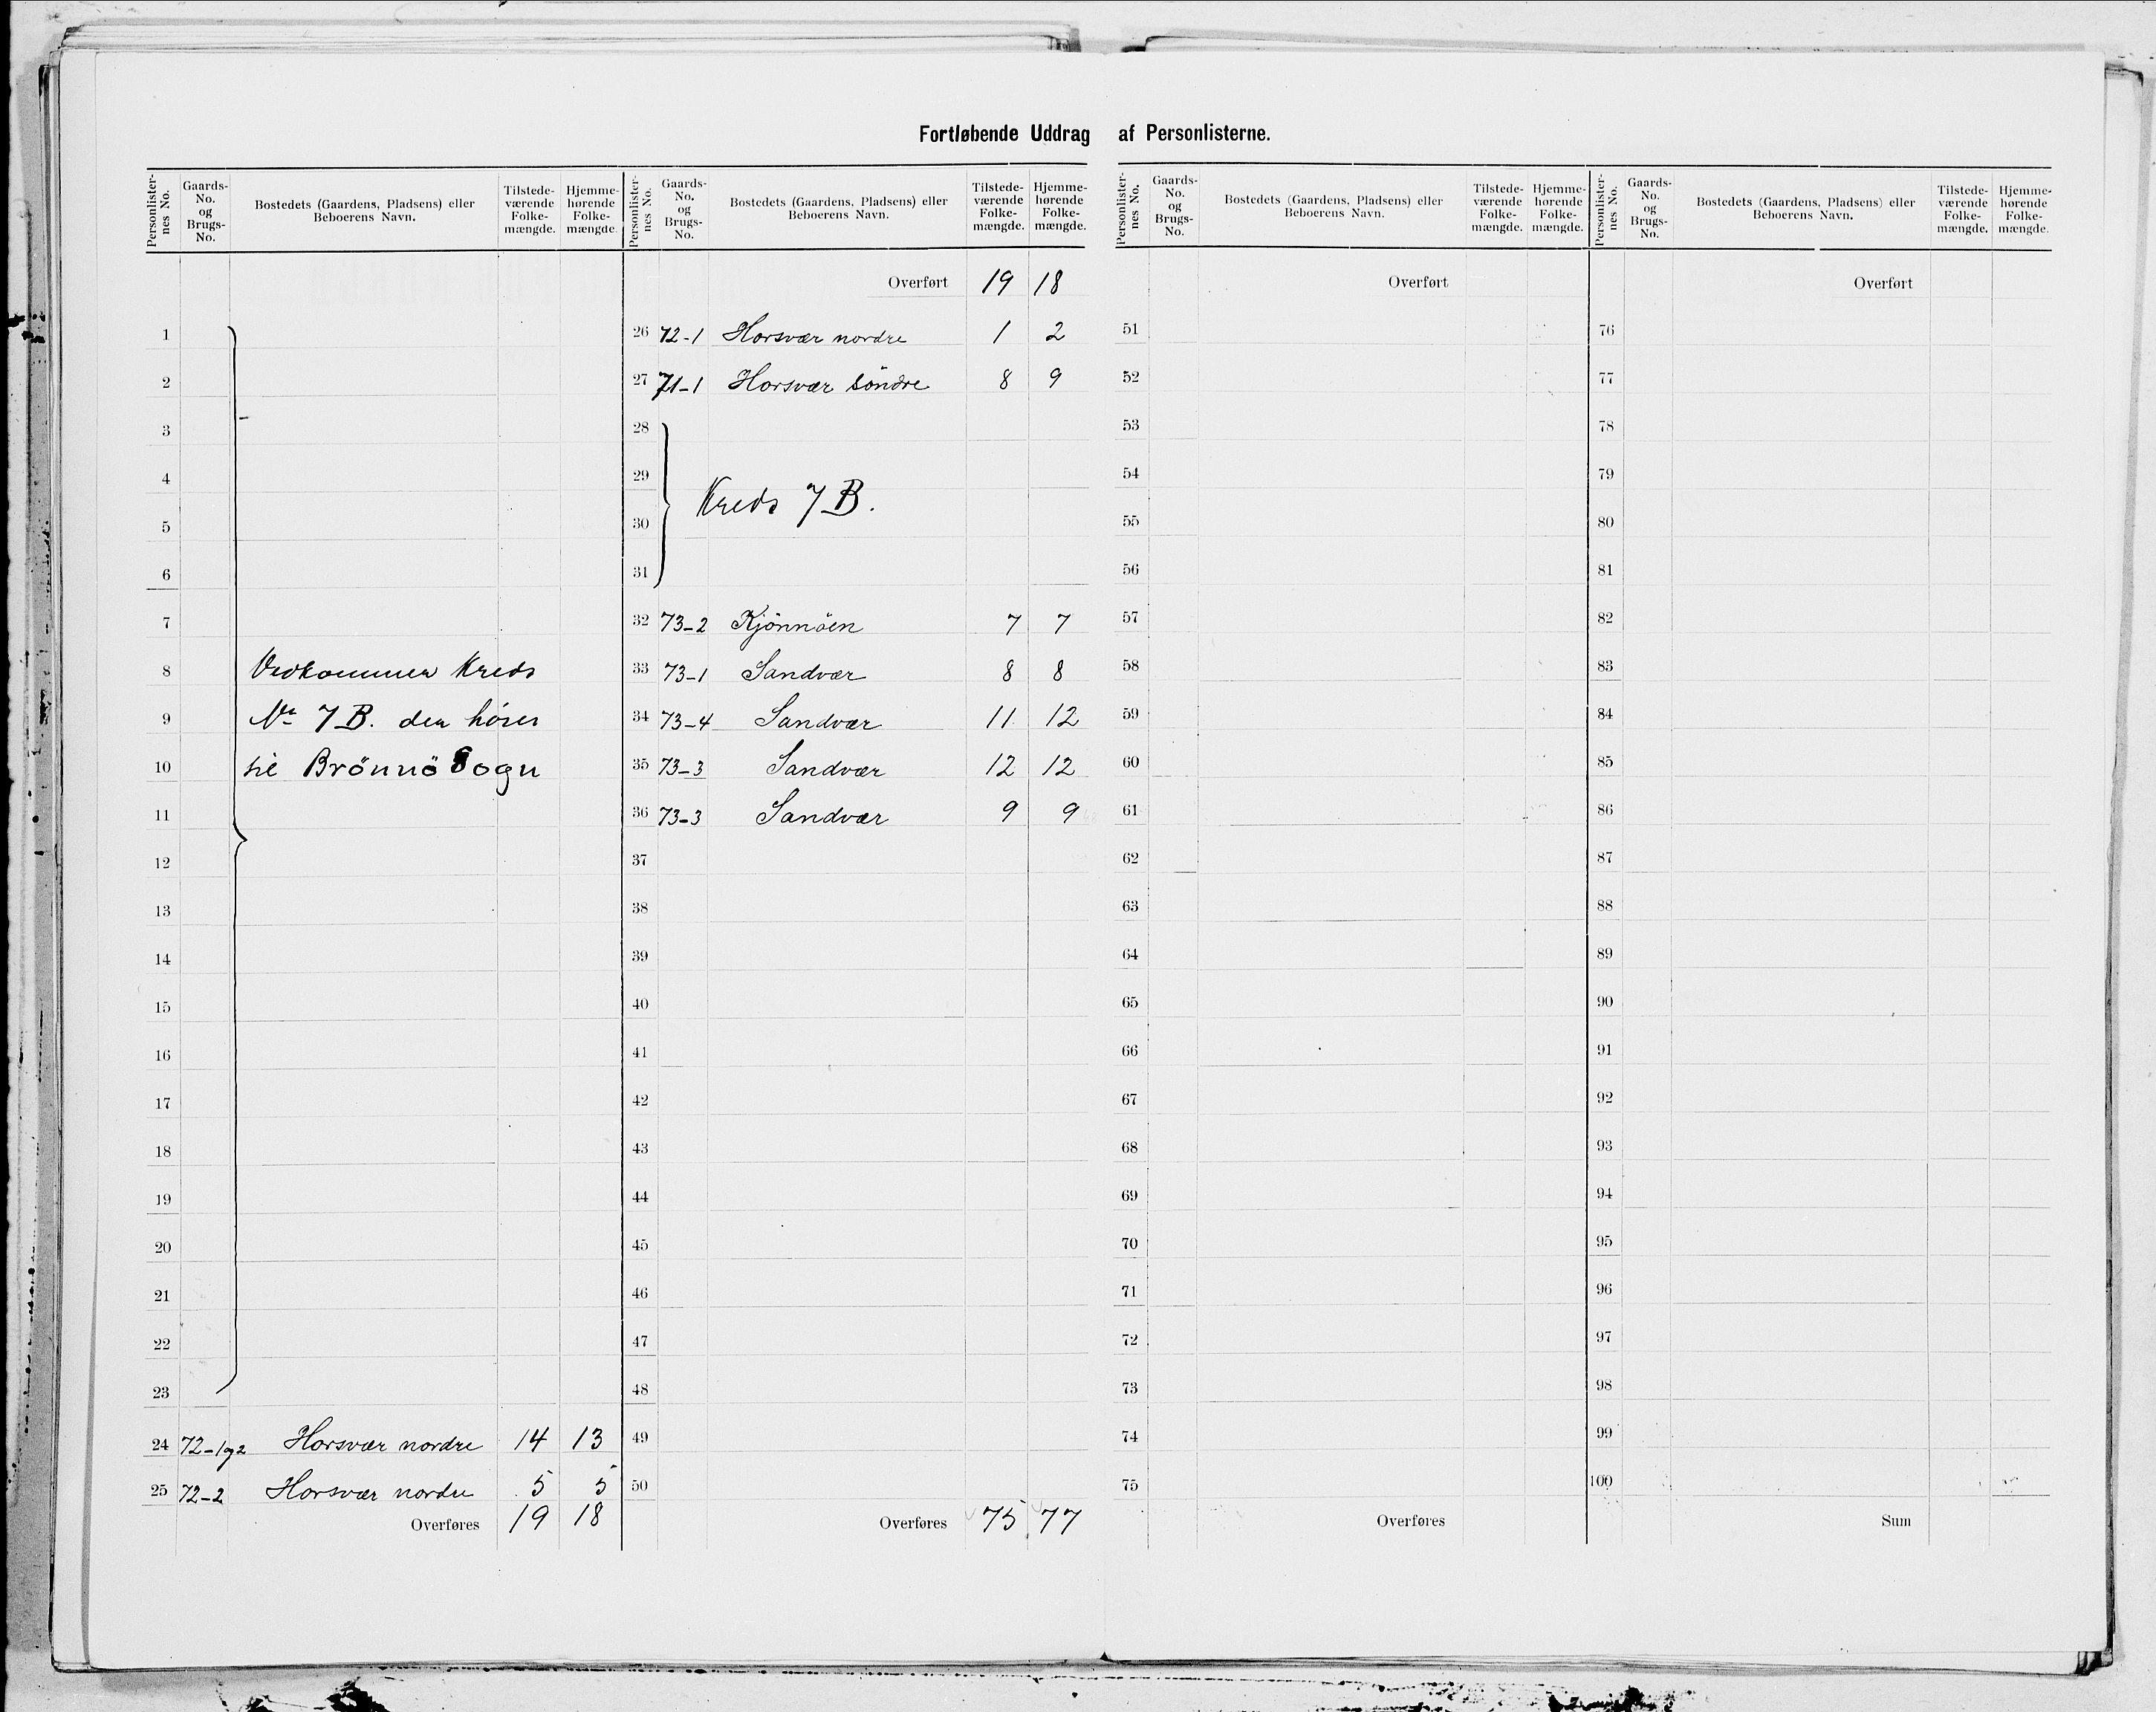 Fortløbende Uddrag af Personlisterne.
Personlister-nes No. Gaards-No. og Brugs-No. Bostedets (Gaardens, Pladsens) eller Beboerens Navn. Tilstede-værende Folke-mængde. Hjemme-hørende Folke-mængde.
1
2
3
4
5
6
7
8 Vedkommer Kreds
9 No 7 B. der hører
10 til Brönnö Sogn
11
12
13
14
15
16
17
18
19
20
21
22
23
24 72-1og2 Horsvær nordre 14 13
25 72-2 Horsvær nordre 5 5
Overføres 19 18
Personlister-nes No. Gaards-No. og Brugs-No. Bostedets (Gaardens, Pladsens) eller Beboerens Navn. Tilstede-værende Folke-mængde. Hjemme-hørende Folke-mængde.
Overført 19 18
26 72-1 Horsvær nordre 1 2
27 71-1 Horsvær söndre 8 9
28
29
Kreds 7 B.
30
31
32 73-2 Kjönnöen 7 7
33 73-1 Sandvær 8 8
34 73-4 Sandvær 11 12
35 73-3 Sandvær 12 12
36 73-3 Sandvær 9 9
37
38
39
40
41
42
43
44
45
46
47
48
49
50
Overføres 75 77
Personlister-nes No. Gaards-No. og Brugs-No. Bostedets (Gaardens, Pladsens) eller Beboerens Navn. Tilstede-værende Folke-mængde. Hjemme-hørende Folke-mængde.
Overført
51
52
53
54
55
56
57
58
59
60
61
62
63
64
65
66
67
68
69
70
71
72
73
74
75
Overføres
Personlister-nes No. Gaards-No. og Brugs-No. Bostedets (Gaardens, Pladsens) eller Beboerens Navn. Tilstede-værende Folke-mængde. Hjemme-hørende Folke-mængde.
Overført
76
77
78
79
80
81
82
83
84
85
86
87
88
89
90
91
92
93
94
95
96
97
98
99
100
Sum